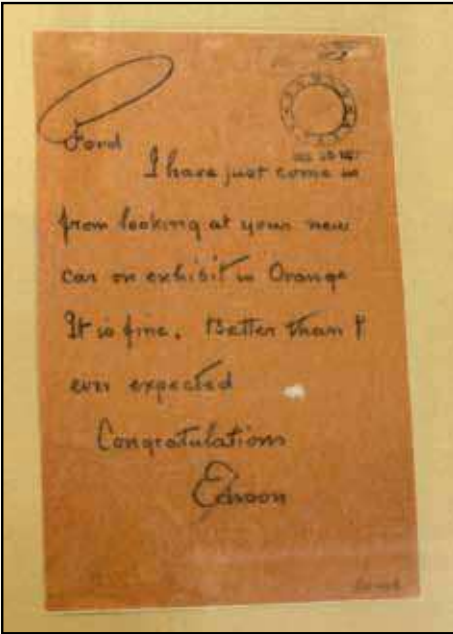 Ford
I have just come in
from looking at your new
car on exhibit in Orange
It is fine. Better than I
ever expected
Congratulations
Edison